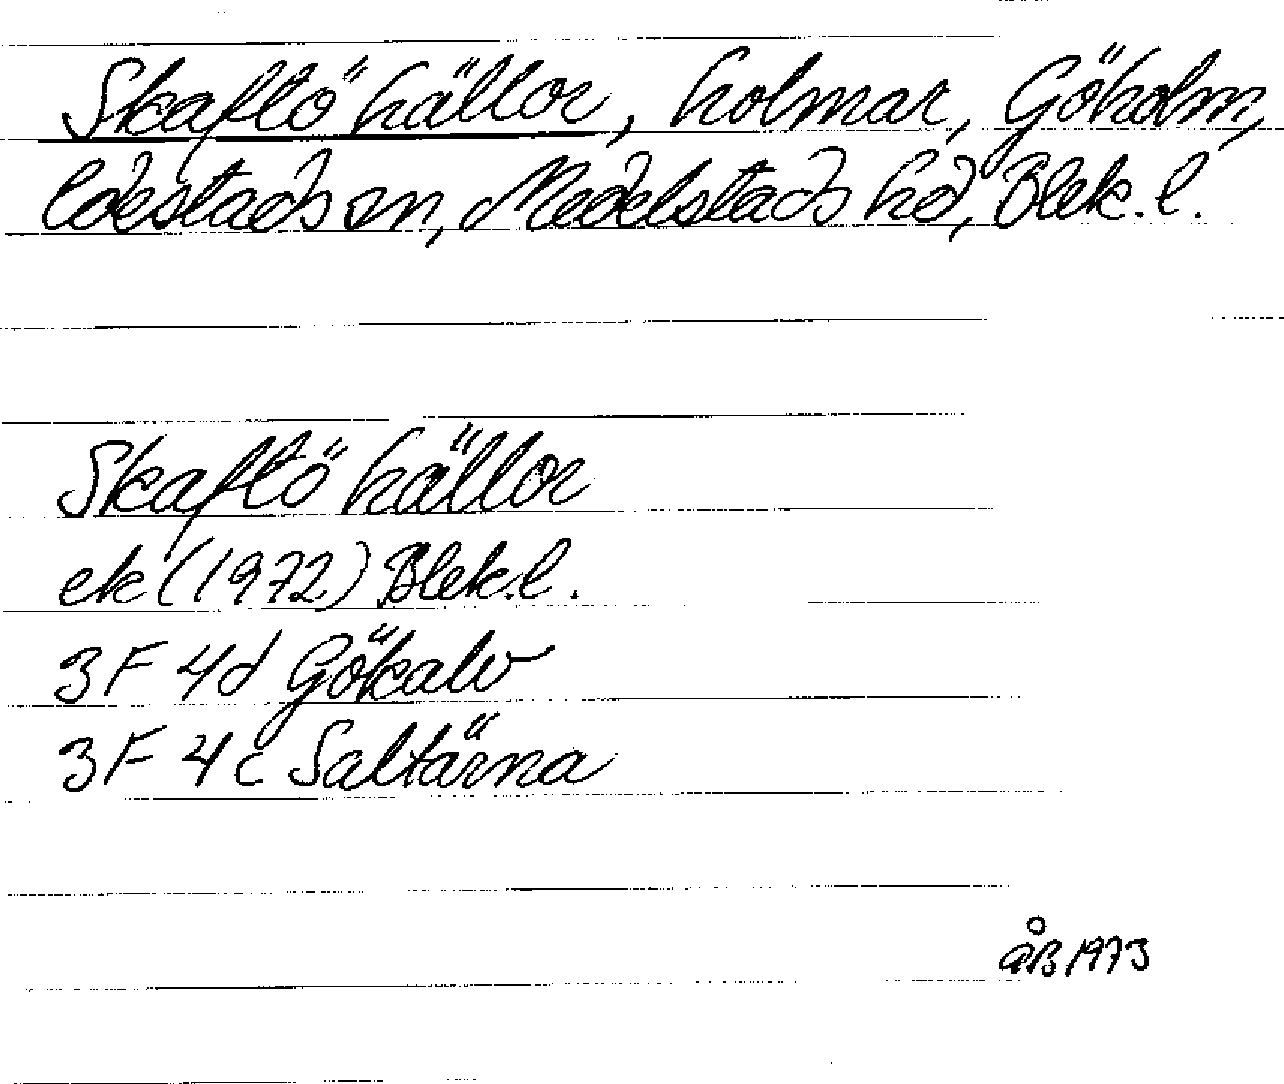 Skaftö hällor, holmar, Göholm,
Edestads sn, Medelstads hd, Blek. l.
Skaftö hällor
ek (1972) Blek. l.
3F 4d Gökalv
3F 4c Saltärna
åB 1973